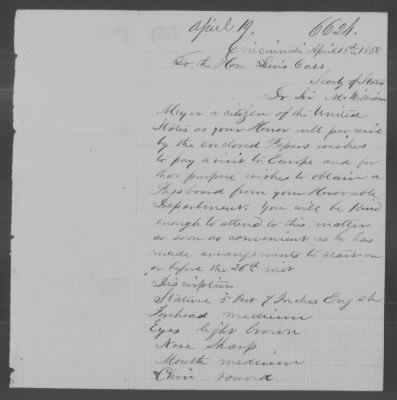 April 19. 6624.
Cincinnati April 15th 1858
To the Hon Lewis Cass
Secty of State
Dr Sir Mr William
Meyer a citizen of the United
States as your Honor will perceive
by the enclosed Papers wishes
to pay a visit to Europe and for
that purpose wishes to obtain a
from your Honorable
Department. You will be kind
enough to attend to this matter
as soon as convenient as he has
made arrangements to start on
or before the 26th inst
Discription
Stature 5 Feet 7 Inches Eng
Forehead medium
Eyes light brown
Nose Sharp
Mouth medium
Chin round